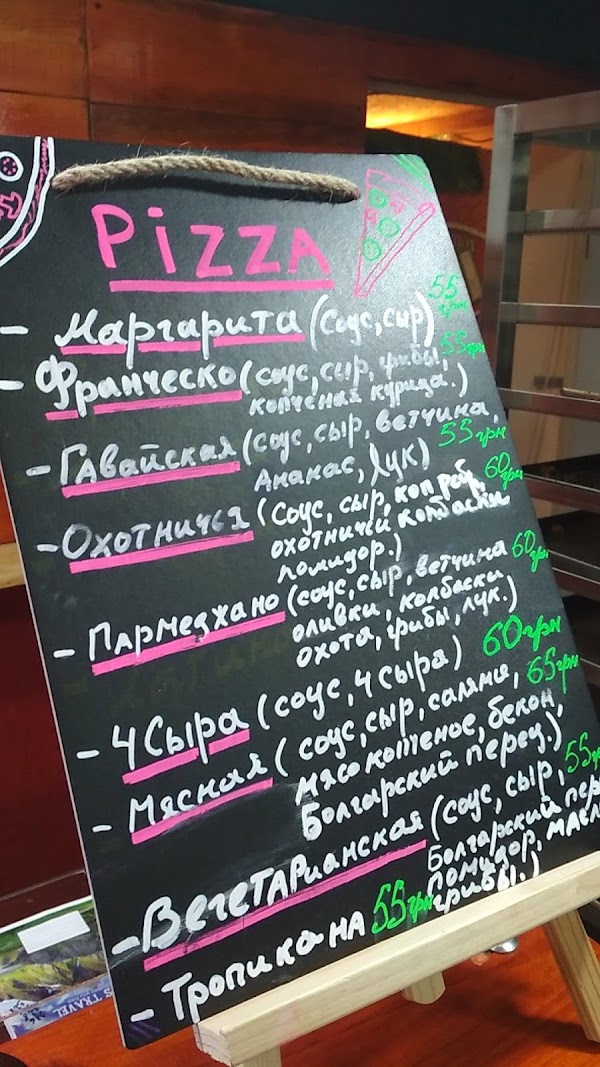 PiZZA
- Маргарита (соус, сыр) 55 грн
- Франческо (соус, сыр, грибы, 55 грн
копченая курица.)
- Гавайская (соус, сыр, ветчина,
Ананас, лук) 55 грн
- Охотничья (соус, сыр, коп реб, 60 грн
охотничьи колбаски
помидор.)
- Пармеджано (соус, сыр, ветчина 60 грн
оливки, колбаски
охота, грибы, лук.)
- 4 Сыра (соус, 4 сыра) 60 грн
- Мясная (соус, сыр, салями, 65 грн
мясо копченое, бекон,
Болгарский перец.)
- Вегетарианская (соус, сыр, 55
Болгарский пер
Помидор, масл
грибы.)
- Тропикана 55 грн
S TRAVEL